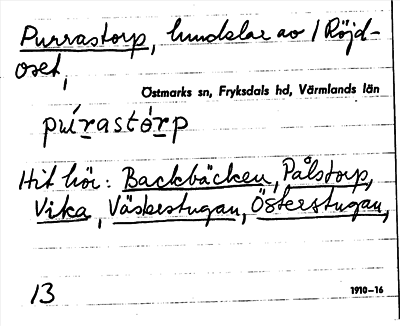 Purrastorp, hundslar av 1 Röjd-
oset,
Östmarks sn, Fryksdals hd, Värmlands län
pùrastórp
Hit hör: Backbäcken, Pålstorp,
Vika, Västerstugan, Österstugan,
13
1910-16